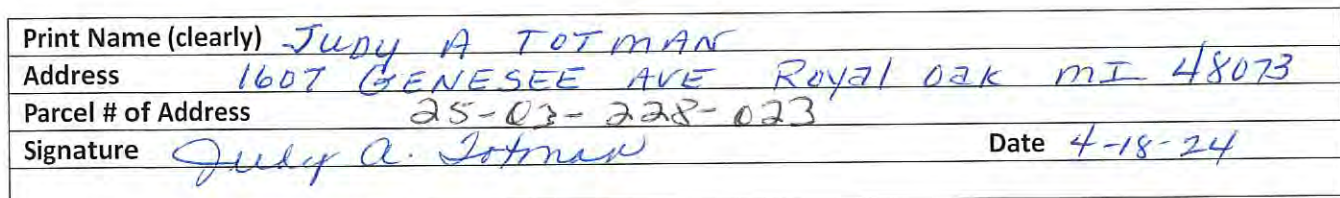 Print Name (clearly) Judy A TOTMAN
Address 1607 GENESEE AVE Royal oak MI 48073
Parcel # of Address 25-03-228-023
Signature Judy A. Totman Date 4-18-24